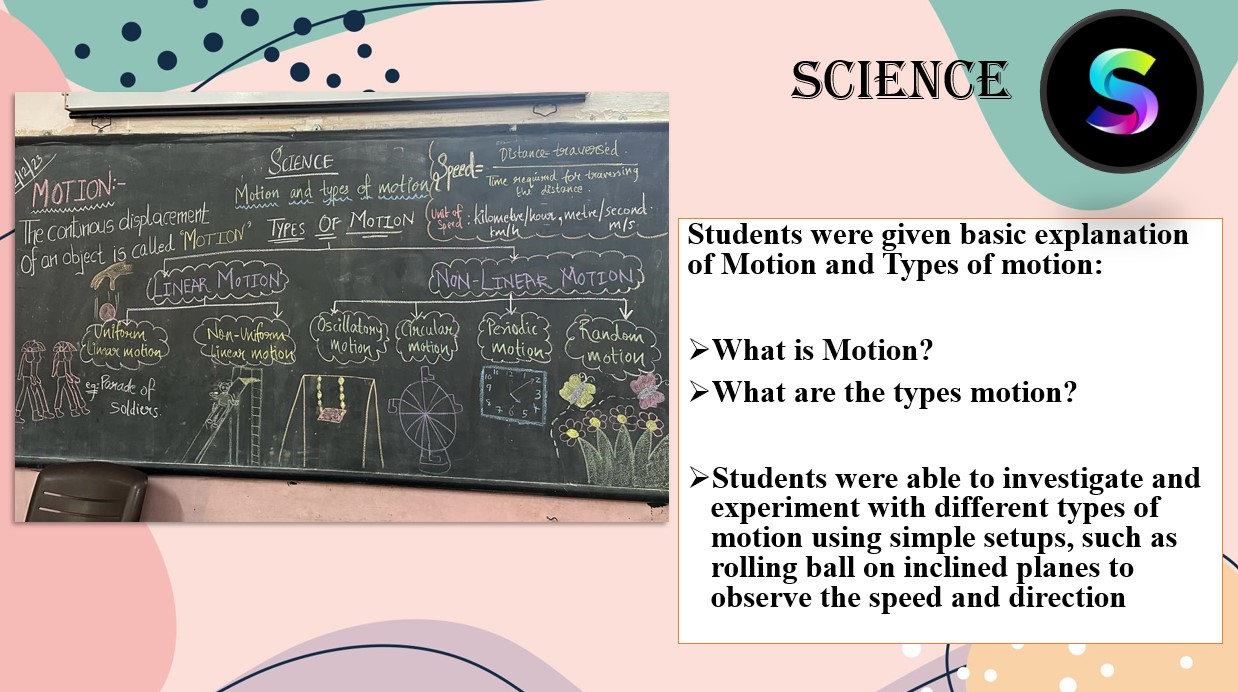 SCIENCE
S
12/23
MOTION:-
The continous displacement
of an object is called "MOTION"
SCIENCE
Motion and types of motion
TYPES OF MOTION
Speed= Distance traversed
Time required for traversing
the distance.
Unit of
Speed : kilometre/hour, metre/second
km/h m/s.
LINEAR MOTION
NON-LINEAR MOTION
Uniform
Linear motion
Non-Uniform
Linear motion
Oscillatory
motion
Circular
motion
Periodic
motion
Random
motion
eg: Parade of
Soldiers.
Students were given basic explanation
of Motion and Types of motion:
➢What is Motion?
➢What are the types motion?
➢Students were able to investigate and
experiment with different types of
motion using simple setups, such as
rolling ball on inclined planes to
observe the speed and direction